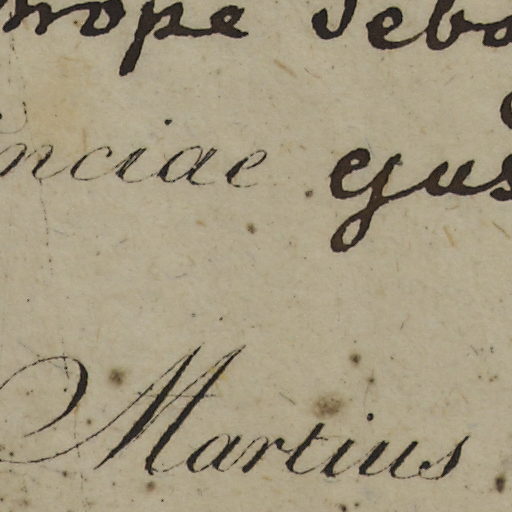 prope Seba
inciae ejus
Martius